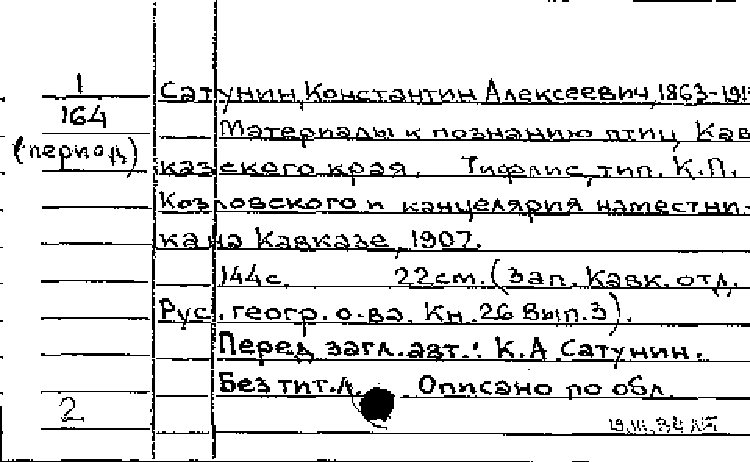 1
164
(период)
Сатунин, Константин Алексеевич, 1863-191
Материалы к познанию птиц Кав
казского края. Тифлис, тип. К.П.
Козловского и канцелярия наместни-
ка на Кавказе, 1907.
144с. 22см. (Зап. Кавк. отд.
Рус. геогр. о-ва. Кн. 26 Вып. 3).
Перед загл. авт.: К.А Сатунин.
Без тит. л. Описано по обл.
2